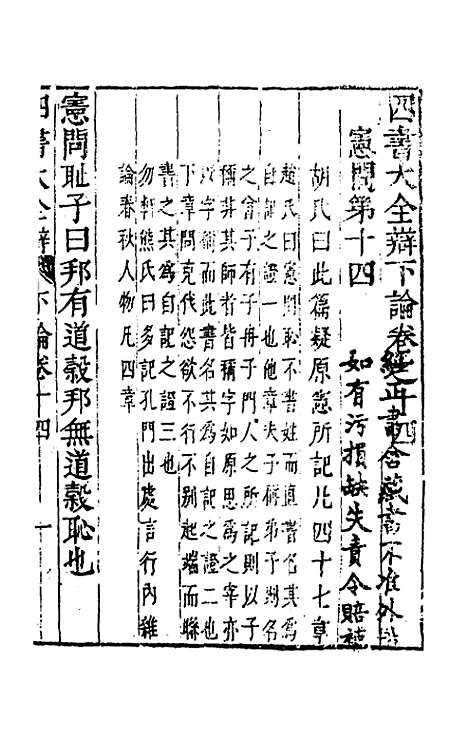 四書大全辯下論卷之十四
經正書舍藏書不准外
憲問第十四
如有污損缺失責令賠補
胡氏曰此篇疑原憲所記凡四十七章
趙氏曰憲問恥不書姓而直書名其爲
自記之證一也他章夫子稱弟子則名
之曾子有子冉子門人之所記則以子
稱非其師者皆稱字如原思爲之宰亦
以字稱而此書名其爲自記之證二也
下章問克伐怨欲不行不别起端而聯
書之其爲自記之證三也
勿軒熊氏曰多記孔門出處言行内雜
論春秋人物凡四章
憲問恥子曰邦有道穀邦無道穀恥也
四書大全辯 下論卷十四 一